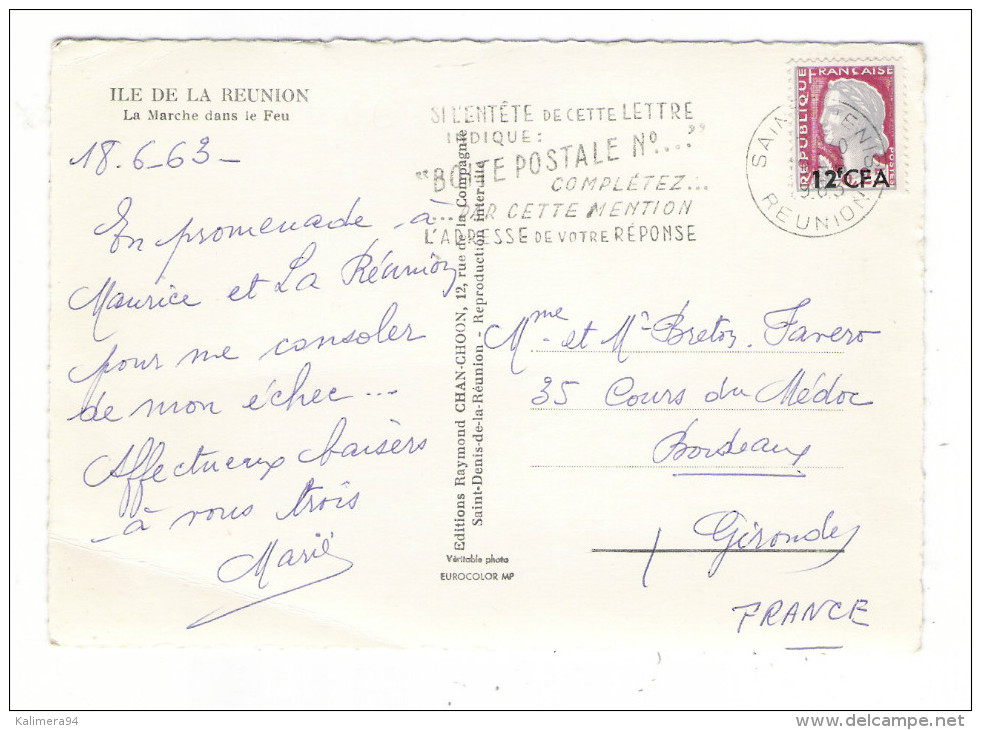 ILE DE LA REUNION
La Marche dans le Feu
18.6-63-
En promenade à
Maurice et La Réunion
pour me consoler
de mon échec...
Affectueux baisers
à vous trois
Marie
SI L'ENTÊTE DE CETTE LETTRE
INDIQUE:
"BOITE POSTALE Nº...."
COMPLÉTEZ...
...PAR CETTE MENTION
L'ADRESSE DE VOTRE RÉPONSE
REPUBLIQUE
FRANÇAISE
POSTES
12F CFA
REUNION
Editions Raymond CHAN-CHOON, 12, rue de la Compagnie
Saint-Denis-de-la-Réunion - Reproduction interdite
Véritable photo
EUROCOLOR MP
Mme et Mr Breton Favero
35 Cours du Médoc
Bordeaux
Gironde
FRANCE
Kalimera94
www.delcampe.net